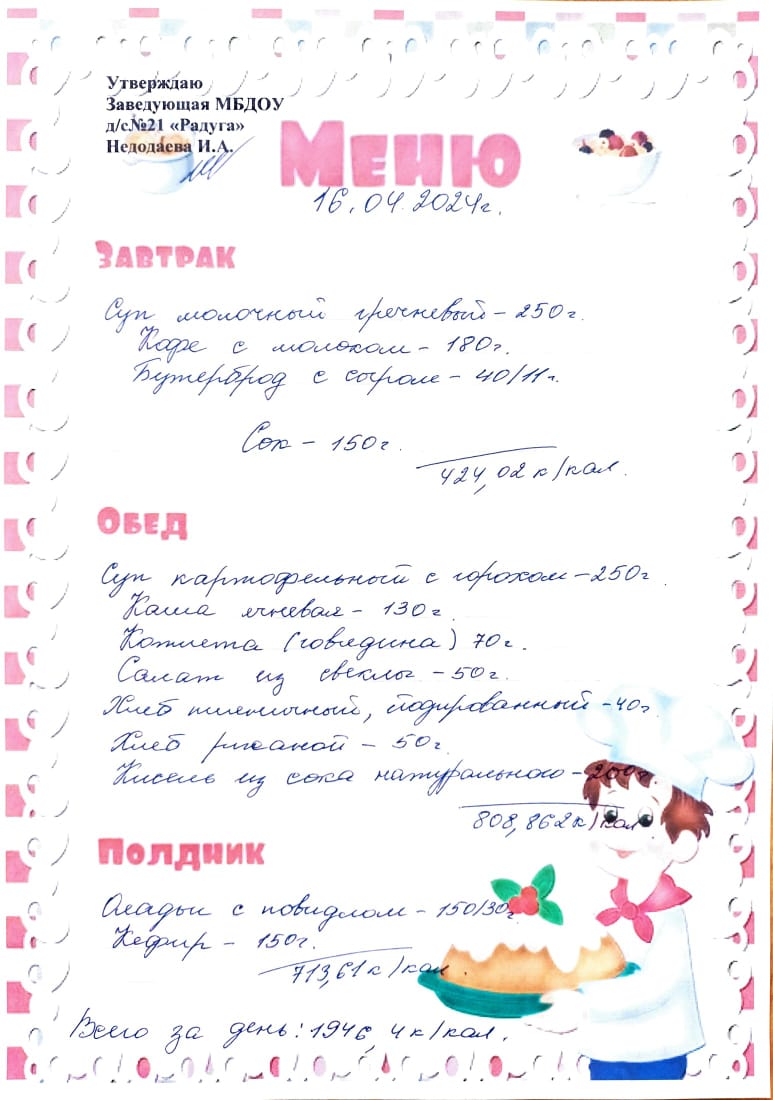 Утверждаю
Заведующая МБДОУ
д/с№21 «Радуга»
Недодаева И.А.
Меню
16.04.2024г.
Завтрак
Суп молочный гречневый - 250г.
Кофе с молоком - 180г.
Бутерброд с сыром - 40/11г.
Сок - 150г.
424,02 к/кал.
Обед
Суп картофельный с горохом - 250г.
Каша ячневая - 130г.
Котлета (говядина) 70г.
Салат из свеклы - 50г.
Хлеб пшеничный, йодированный - 40г.
Хлеб ржаной - 50г.
Кисель из сока натурального - 200г.
808,862к/кал
Полдник
Оладьи с повидлом - 150/30г.
Кефир - 150г.
713,61к/кал.
Всего за день: 1946,4к/кал.